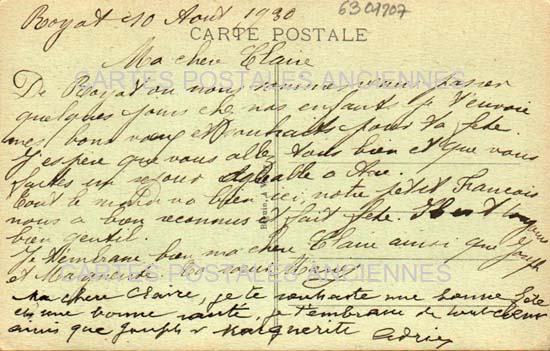 Royat 10 Août 1930
6301707
CARTE POSTALE
Ma chere Claire
CARTES POSTALES ANCIENNES
De Royat ou nous sommes venu passer
quelques jours che nos enfants je t'envoie
mes bons voeux et souhaits pour ta fête.
J'espere que vous alle tous bien et que vous
faites un sejour agreable a
tout le monde va bien ici, notre petit Francois
nous a bien reconnus et fait fête. Il est toujours
bien gentil.
Je t'embrasse bien ma chere Claire ainsi que Joseph
et
CARTES POSTALES ANCIENNES
Ma chere Claire, je te souhaite une bonne fête
et une bonne santé, je t'embrasse de tout coeur
ainsi que Joseph et Marguerite